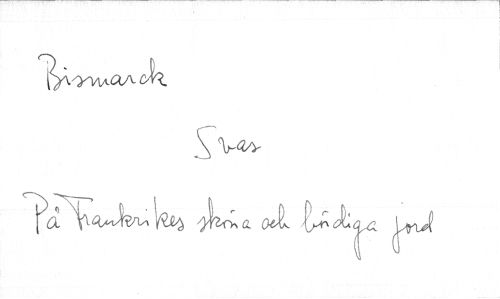 Bismarck
Svas
På Frankrikes sköna och bördiga jord